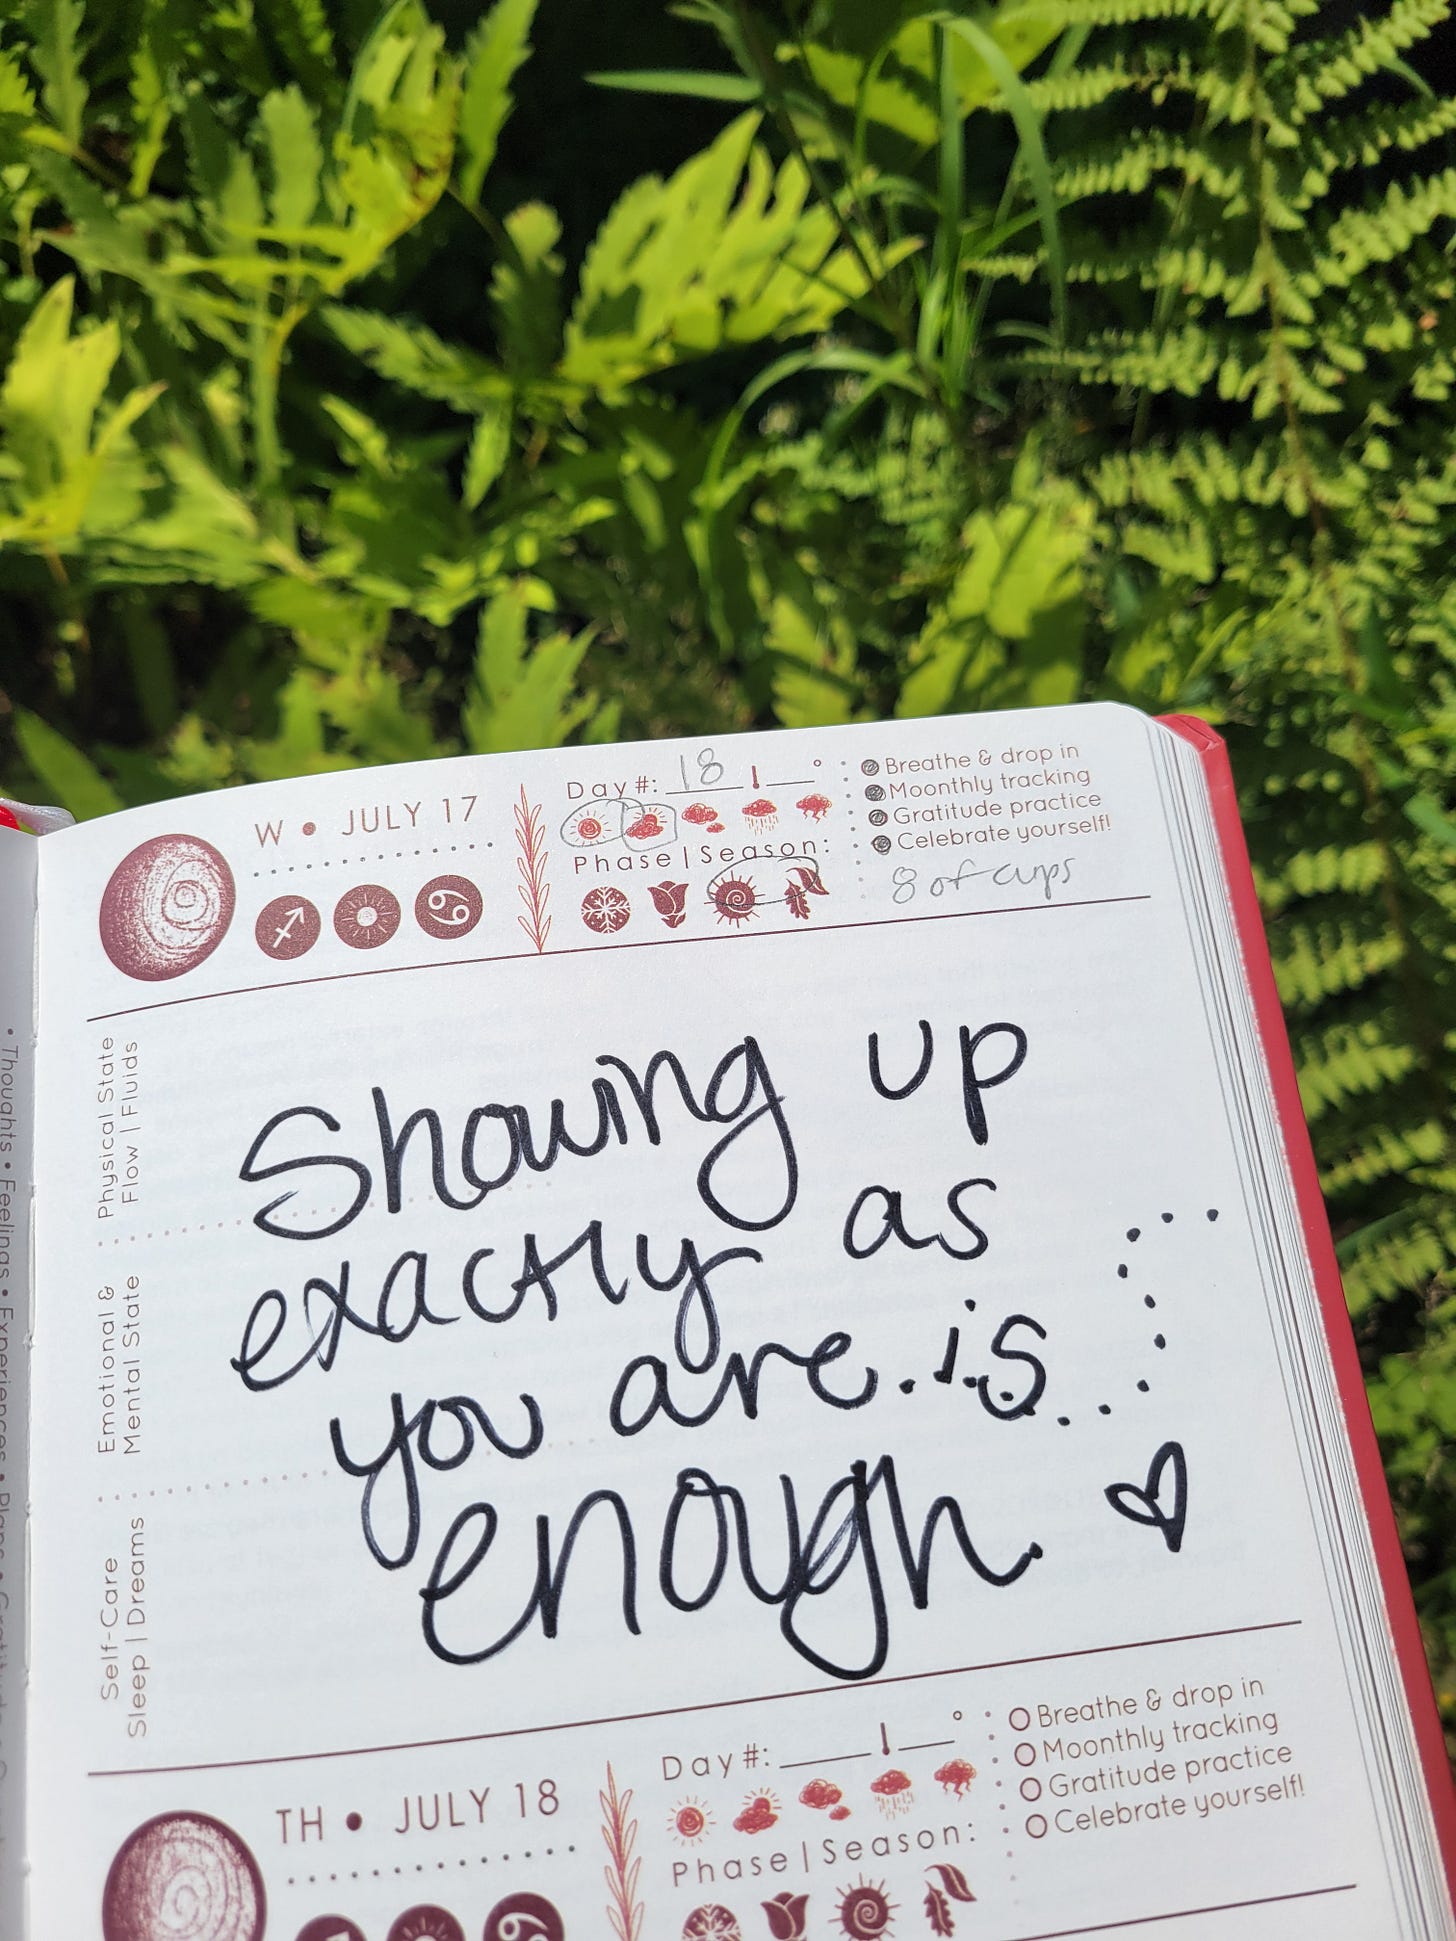 W • JULY 17
Day #: 18 °
Phase | Season:
Breathe & drop in
Moonthly tracking
Gratitude practice
Celebrate yourself!
8 of cups
Physical State
Flow | Fluids
Emotional &
Mental State
Self-Care
Sleep | Dreams
Showing up
exactly as
you are. is
enough.
TH • JULY 18
Day #: °
Phase | Season:
Breathe & drop in
Moonthly tracking
Gratitude practice
Celebrate yourself!
• Thoughts • Feelings • Experiences • Plans • Gratitude